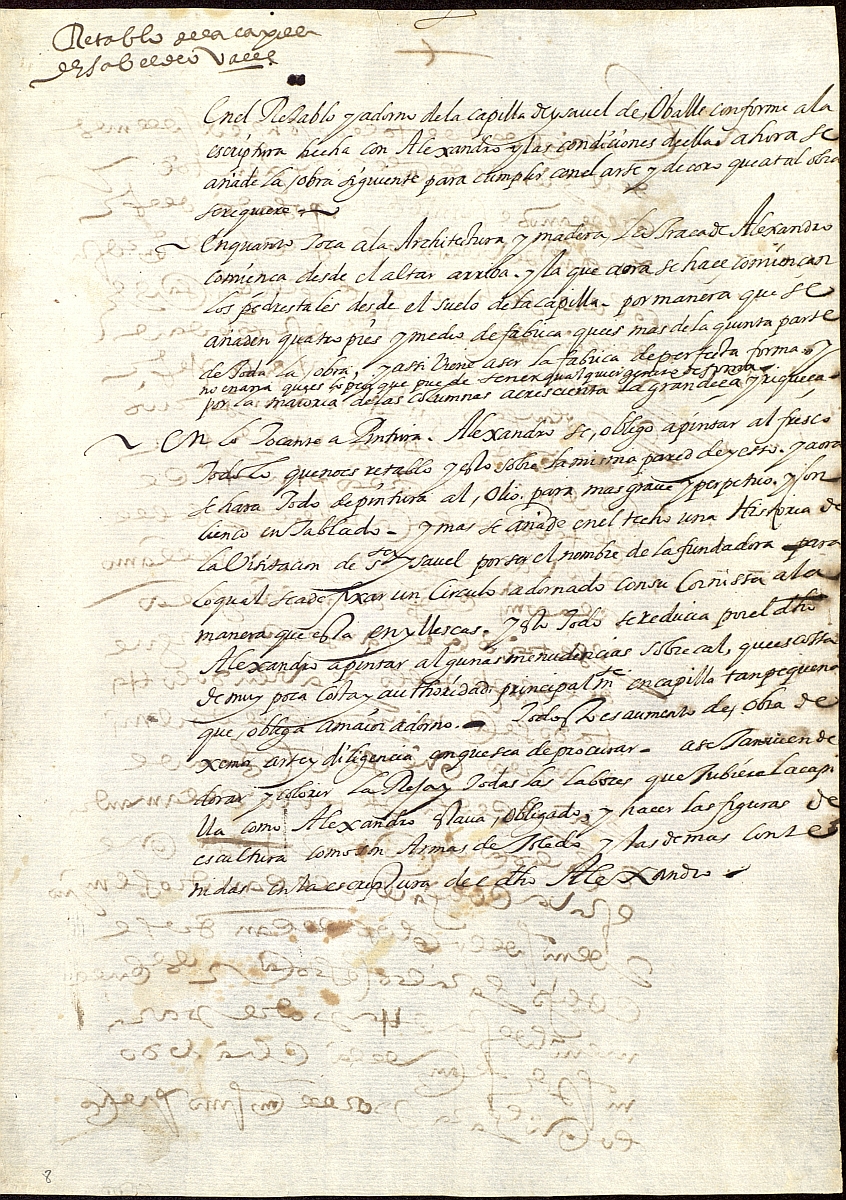 Retablo de la capilla
de Isabel de o Valle
En el Retablo y adorno de la capilla de ysauel de Oballe conforme a la
escriptura hecha con Alexandro y las condiciones de ella. ahora se
añade la obra siguiente para cumplir con el arte y decoro que a tal obra
se requiere.
En quanto Toca a la Architectura, y madera La Traça de Alexandro
comiença desde el altar arriba. y la que aora se hace comiençan
los pedrestales desde el suelo de la capilla. por manera que se
añaden quatro pies y medio de fabrica que es mas de la quinta parte
de Toda la obra, y assi viene a ser la fabrica de perfecta forma. y
no enana que es lo peor que puede tener qualquier genero de forma.
por la maioria de las columnas acrescienta la grandeça y riqueça.
En lo Tocante a Pintura. Alexandro se obligo a pintar al fresco
Todo lo que no es retablo y esto sobre la misma pared de yesso. y aora
se hara Todo de pintura al Olio. para mas graue y perpetuo. y son
lienço en Tablado. y mas se añade en el techo una Historia de
la Visitacion de sta ysauel por ser el nombre de la fundadora para
lo qual se a de fixar un Circulo adornado con su Cornissa a la
manera que esta en yllescas. y esto Todo se reducia por el dho
Alexandro a pintar algunas menudencias sobre cal, que es cossa
de muy poca costa y authoridad. principalmte en capilla tan pequeña
que obliga a maior adorno. Todo esto es aumento de Obra de
xemo, arte y diligencia en que sea de procurar. a se Tambien de
dorar y colorir La Reja y Todas las labores que Tubiere La capi
lla como Alexandro estaua obligado, y hacer las figuras de
escultura como son Armas de Toledo y las demas conte
nidas en la escriptura de el dho Alexandro
8